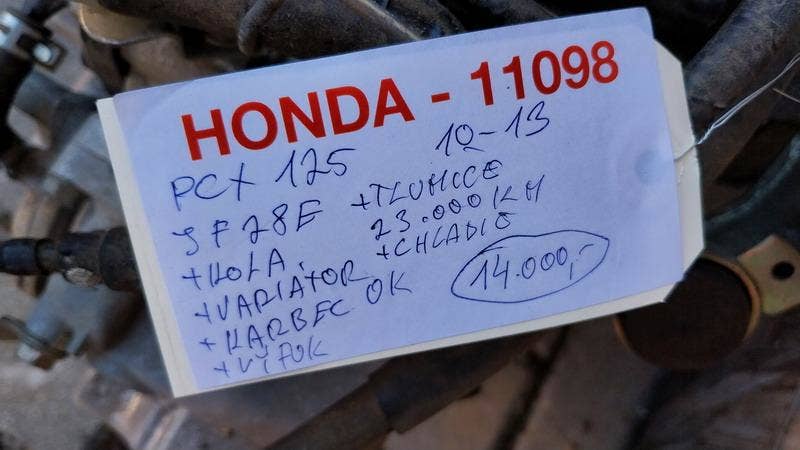 HONDA - 11098
PCX 125 10-13
JF28E +TLUMICE
+KOLA. 23.000 KM
+VARIATOR +CHLADIČ
+KARBEC OK 14.000,-
+VÝFUK